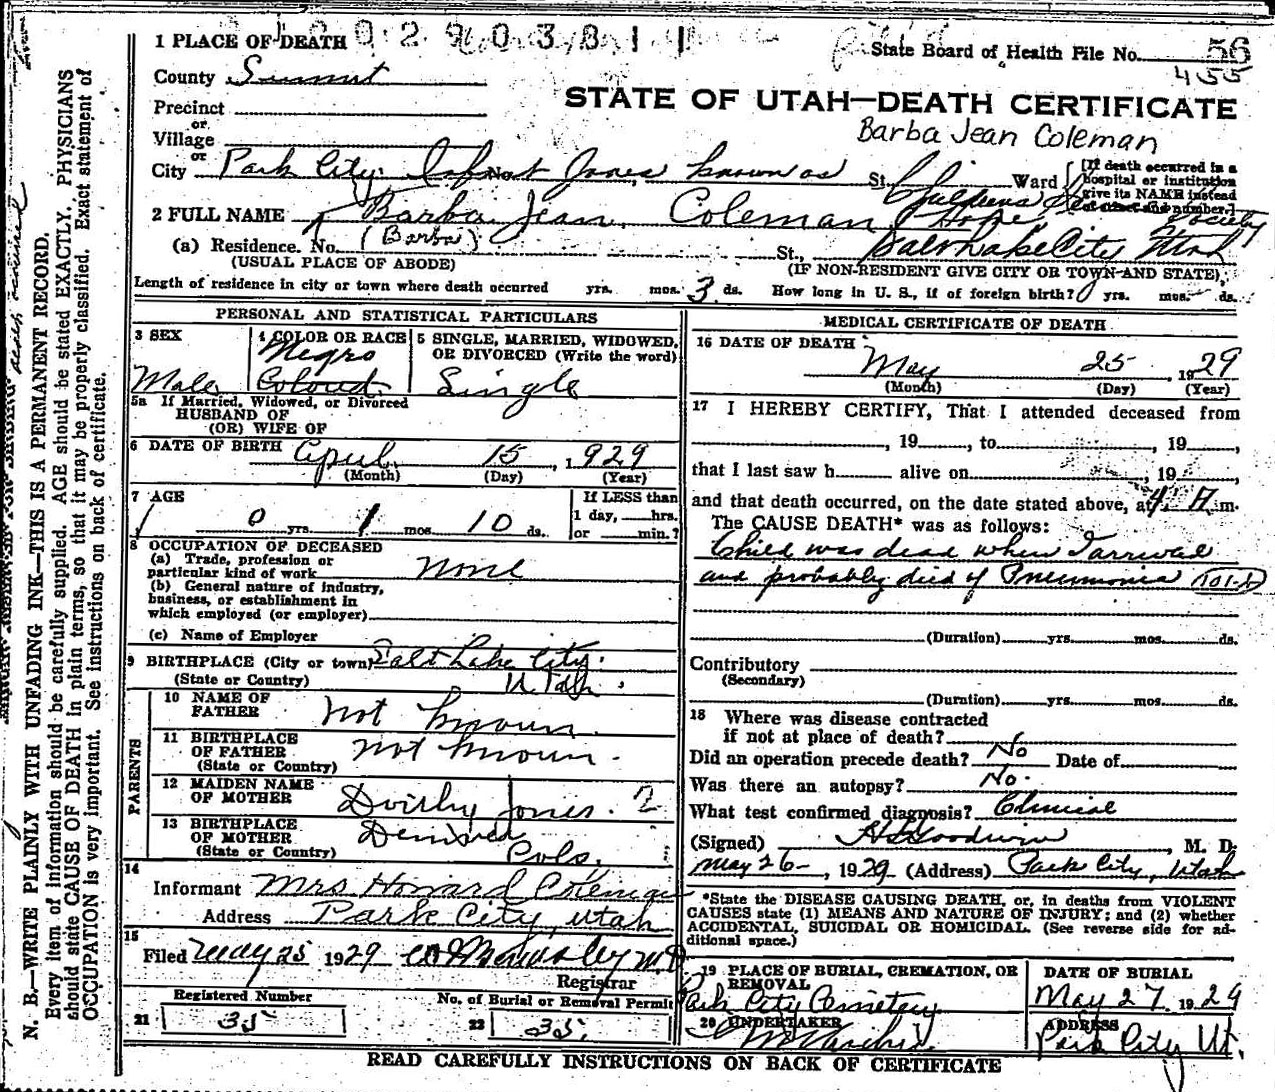 1 PLACE OF DEATH
State Board of Health File No. 56
455
County Summit
STATE OF UTAH—DEATH CERTIFICATE
Precinct
or
Village
Barba Jean Coleman
or
City Park City. Infant Jones, known as St. Ward
[If death occurred in a
hospital or institution
give its NAME instead
of street and number.]
Childrens Society
2 FULL NAME Barba Jean Coleman
(a) Residence. No. (Barba) St., Salt Lake City Utah
(USUAL PLACE OF ABODE) (IF NON-RESIDENT GIVE CITY OR TOWN AND STATE)
Length of residence in city or town where death occurred yrs. mos. 3 ds. How long in U. S., if of foreign birth? yrs. mos. ds.
PERSONAL AND STATISTICAL PARTICULARS
3 SEX 4 COLOR OR RACE 5 SINGLE, MARRIED, WIDOWED,
OR DIVORCED (Write the word)
Negro
Male Colored Single
5a If Married, Widowed, or Divorced
HUSBAND OF
(OR) WIFE OF
6 DATE OF BIRTH April 15, 1929
(Month) (Day) (Year)
7 AGE If LESS than
0 yrs. 1 mos. 10 ds. 1 day, hrs.
or min.?
8 OCCUPATION OF DECEASED
(a) Trade, profession or
particular kind of work none
(b) General nature of industry,
business, or establishment in
which employed (or employer)
(c) Name of Employer
9 BIRTHPLACE (City or town) Salt Lake City.
(State or Country) Utah.
PARENTS
10 NAME OF
FATHER not known
11 BIRTHPLACE
OF FATHER not known.
(State or Country)
12 MAIDEN NAME
OF MOTHER Jones. ?
13 BIRTHPLACE
OF MOTHER Denver
(State or Country) Colo.
14
Informant Mrs Howard Coleman
Address Park City, Utah
15
Filed May 25 1929 M.D.
Registrar
Registered Number No. of Burial or Removal Permit
21 35 22 35
MEDICAL CERTIFICATE OF DEATH
16 DATE OF DEATH
May 25, 1929
(Month) (Day) (Year)
17 I HEREBY CERTIFY, That I attended deceased from
, 19 , to , 19 ,
that I last saw h alive on , 19 ,
and that death occurred, on the date stated above, at 4 A m.
The CAUSE DEATH* was as follows:
Child was dead when I arrived
and probably died of Pneumonia
(Duration) yrs. mos. ds.
Contributory
(Secondary)
(Duration) yrs. mos. ds.
18 Where was disease contracted
if not at place of death?
Did an operation precede death? No Date of
Was there an autopsy? No.
What test confirmed diagnosis? Clinical
(Signed) Goodwin, M. D.
May 26, 1929 (Address) Park City, Utah
*State the DISEASE CAUSING DEATH, or, in deaths from VIOLENT
CAUSES state (1) MEANS AND NATURE OF INJURY; and (2) whether
ACCIDENTAL, SUICIDAL OR HOMICIDAL. (See reverse side for ad-
ditional space.)
19 PLACE OF BURIAL, CREMATION, OR
REMOVAL
Park City Cemetery
DATE OF BURIAL
May 27 1929
20 UNDERTAKER
ADDRESS
Park City Ut.
READ CAREFULLY INSTRUCTIONS ON BACK OF CERTIFICATE
N. B.—WRITE PLAINLY WITH UNFADING INK—THIS IS A PERMANENT RECORD.
Every item of information should be carefully supplied. AGE should be stated EXACTLY. PHYSICIANS
should state CAUSE OF DEATH in plain terms, so that it may be properly classified. Exact statement of
OCCUPATION is very important. See instructions on back of certificate.